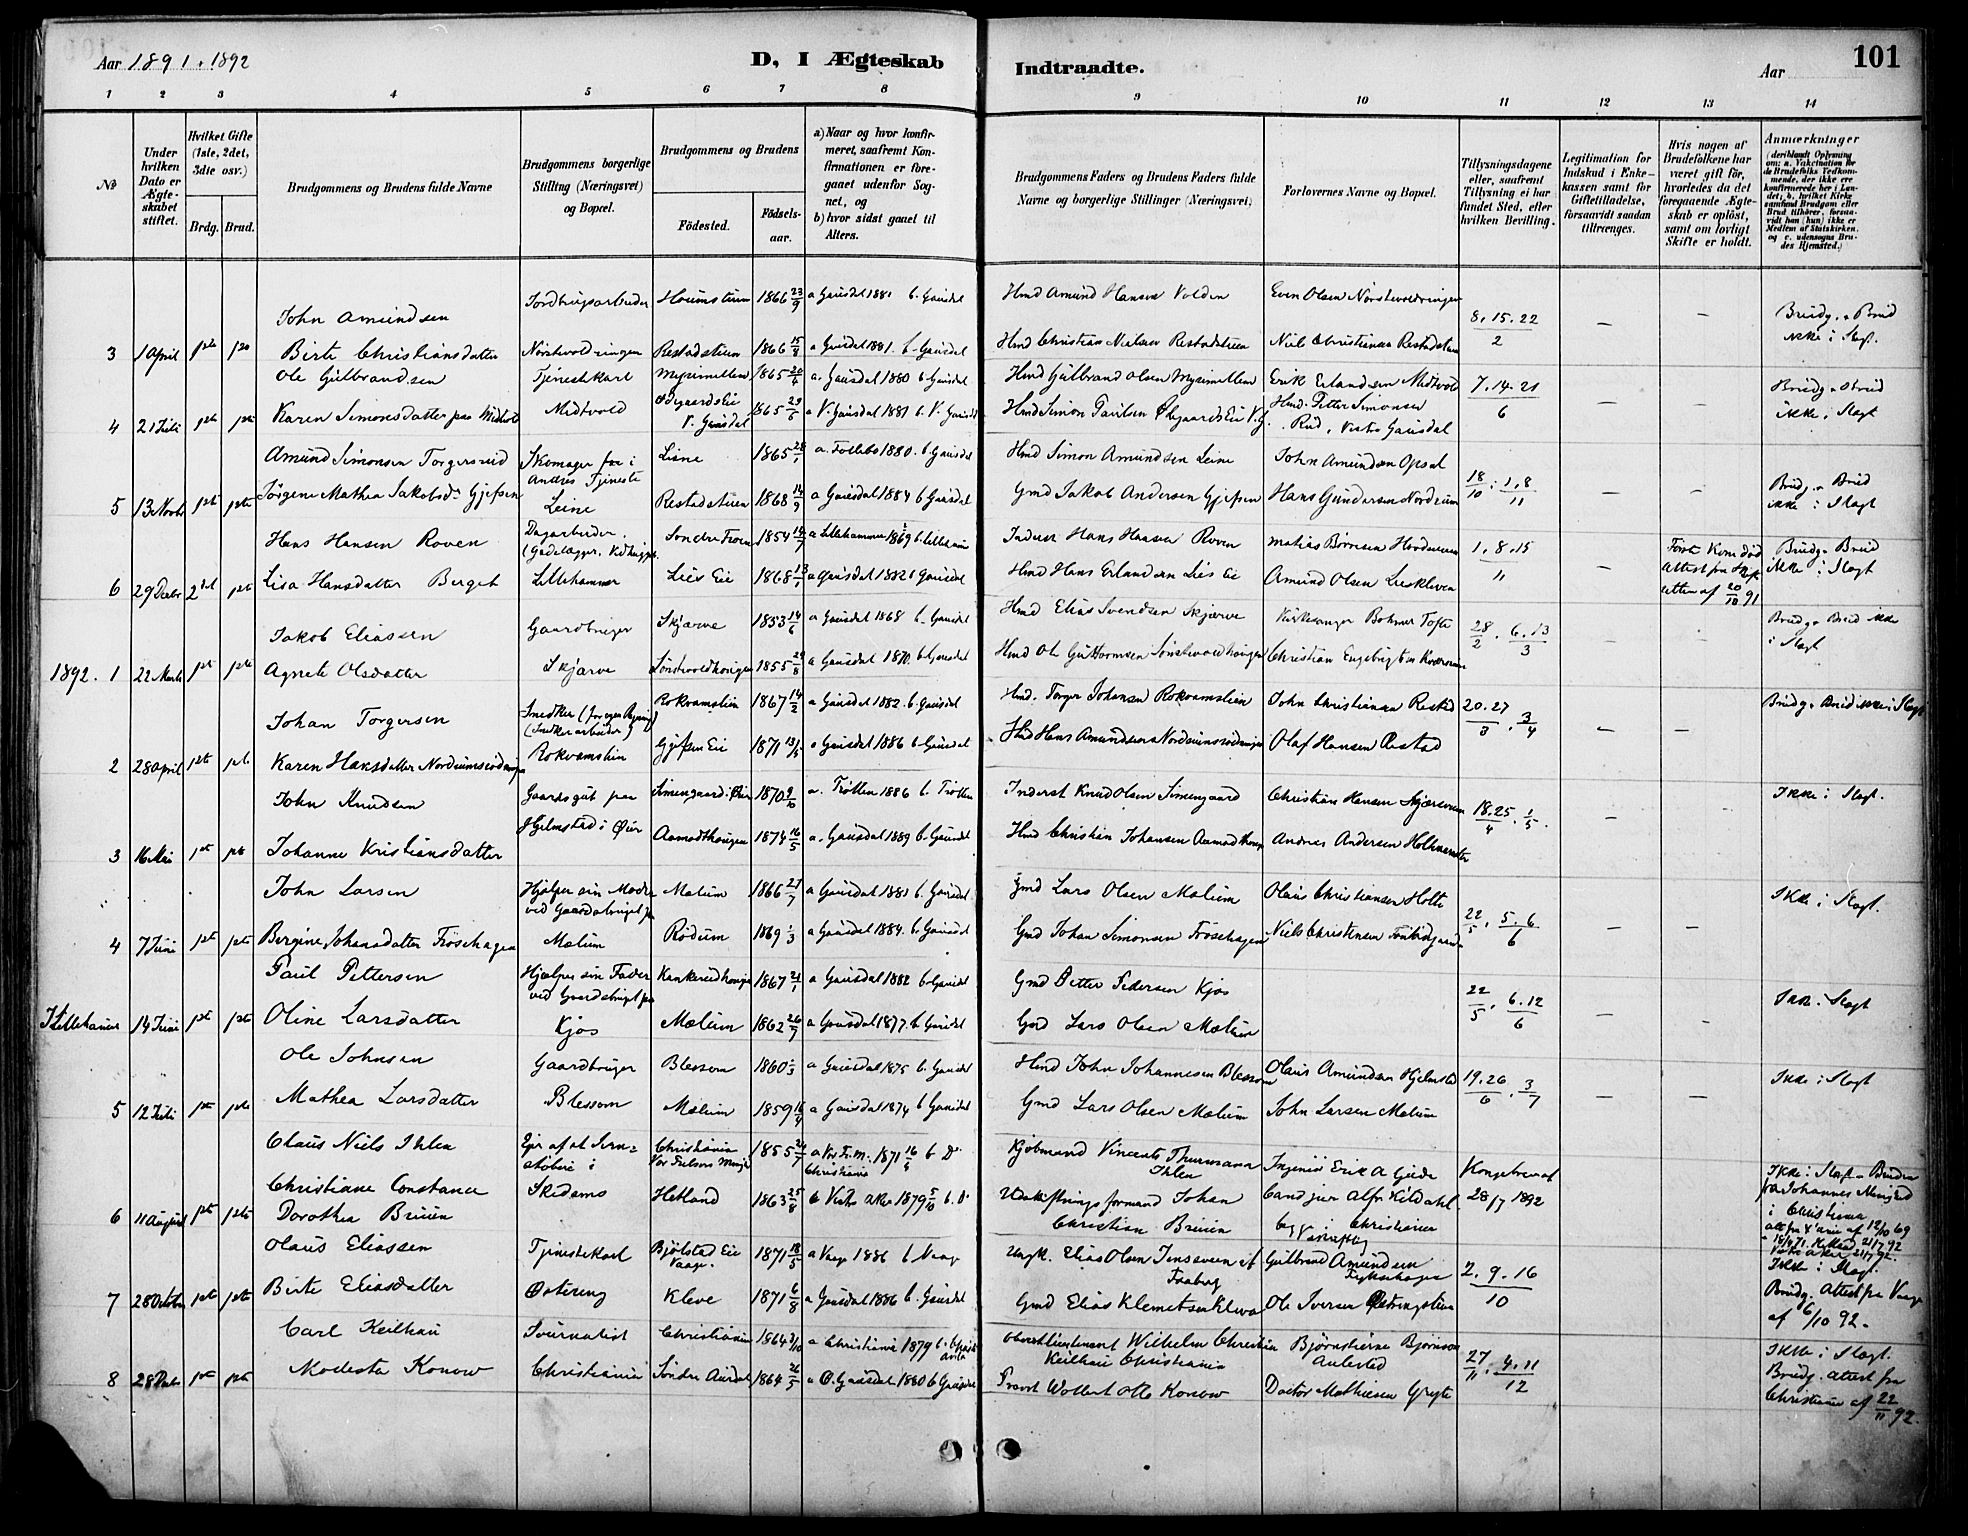 Aar 1891. 1892
D, I Ægteskab
Indtraadte.
Aar
101
1 2 3 4 5 6 7 8 9 10 11 12 13 14
No
Under hvilken Dato er Ægteskabet stiftet.
Hvilket Gifte (1ste, 2det, 3die osv.)
Brdg. Brud.
Brudgommens og Brudens fulde Navne
Brudgommens borgerlige Stilling (Næringsvei) og Bopæl.
Brudgommens og Brudens
Fødested.
Fødselsaar.
a) Naar og hvor konfirmeret, saafremt Konfirmationen er foregaaet udenfor Sognet, og
b) hvor sidst gaaet til Alters.
Brudgommens Faders og Brudens Faders fulde Navne og borgerlige Stillinger (Næringsvei)
Forlovernes Navne og Bopæl.
Tillysningsdagene eller, saafremt Tillysning ei har fundet Sted, efter hvilken Bevilling.
Legitimation for Indskud i Enkekassen samt for Giftetilladelse, forsaavidt saadan tiltrænges.
Hvis nogen af Brudefolkene har været gift før, hvorledes da det foregaaende Ægteskab er opløst, samt om lovligt Skifte er holdt.
Anmærkninger (deriblandt Oplysning om: a. Vakcination for de Brudefolks Vedkommende, der ikke ere konfirmerede her i Landet; b. hvilket Kirkesamfund Brudgom eller Brud tilhører, forsaavidt han (hun) ikke er Medlem af Statskirken, og c. udensogns Brudes Hjemsted.)
John Amundsen Jordbrugsarbeider 1866 23/9 a Gausdal 1881 b. Gausdal Hmd Amund Hansen Volden Even Olsen Nørstevoldringen 8. 15. 22 / 2 — — Brudg. & Brud ikke i Slægt.
3 1 April 1ste 1ste Birte Christiansdatter Nørstevoldringen Restadstuen 1866 15/8 a Gausdal 1881. b. Gausdal Hmd Christian Nielsen Restadstuen Niels Christiansen Restadstuen
Ole Gulbrandsen Tjenestekarl Myrimellem 1865 20/6 a. Gausdal 1880 b. Gausdal Hmd Gulbrand Olsen Myrimellem Erik Erlandsen Midtvold 7. 14. 21 / 6 — — Brudg. & Brud ikke i Slægt
4 21 Juli 1ste 1ste Karen Simonsdatter paa Midtvold Midtvold Ødegaards Eie V. Gausdal 1865 29/6 a V. Gausdal 1881 b. V. Gausdal Hmd Simon Paulsen Øegaards Eie V.G. Hmd. Petter Simonsen Rud, Vestre Gausdal
Amund Simonsen Torgersrud Skomager for i Andres Tjeneste Leine 1865 28/1 a. Follebo 1880. b. Gausdal Hmd Simon Amundsen Leine John Amundsen Opsal 18/10. 1. 8 / 11 — — Brudg. & Brud ikke i Slægt
5 13 Novbr 1ste 1ste Jørgine Mathea Jakobsdr Gjefsen Leine Restadstuen 1868 14/9 a Gausdal 1884 b Gausdal Gmd Jakob Andersen Gjefsen Hans Gundersen Nordrum
Hans Hansen Roven Dagarbeider Søndre Fron 1854 a Lillehammer 1869 b Lillehammer Inderst Hans Hansen Roven Mathias Børresen 1. 8. 15 / 11 — Først Kone død Attest fra Skifteretten af 20/10 91 Brudg. & Brud ikke i Slægt
6 29 Decbr 2det 1ste Lisa Hansdatter Berget Lillehammer Lies Eie 1868 13/1 a Gausdal 1882 b Gausdal Hmd Hans Erlandsen Lies Eie Amund Olsen Lieskleven
Jakob Eliassen Gaardbruger Skjærve 1853 14/6 a Gausdal 1868 b. Gausdal Hmd Elias Svendsen Skjærve Kirkesanger Bohmer Tofte 28/2. 6. 13 / 3 — Brudg. & Brud ikke i Slægt
1892. 1 22 Marts 1ste 1ste Agnete Olsdatter Skjærve 1855 29/8 a Gausdal 1870. b. Gausdal Hmd Ole Guttormsen Christian Engebrigtsen
Johan Torgersen Snedker (for egen Regning) (Snedkerarbeider) Rokvamslien 1867 14/2 a Gausdal 1882. b. Gausdal Hmd. Torger Johansen Rokvamslien John Christiansen Restad 20. 27 / 3. 3/4 — — Brudg. & Brud ikke i Slægt
2 28 April 1ste 1ste Karen Hansdatter Nordrumsrødningen Rokvamslien Gjefsen Eie 1871 a Gausdal 1886 b Gausdal Hmd Hans Amundsen Nordrumsrødningen Olaf Hansen Restad
John Knudsen Gaardsgut paa Hjelmstad i Øier Simengaard i Øier 1870 9/10 a. Trøtten 1886 b. Trøtten Inderst Knud Olsen Simengaard Christian Hansen 18. 25 / 4. 1/5. — Ikke i Slægt.
3 16 Mai 1ste 1ste Johanne Kristiansdatter Aamodthaugen 1874 16/5 a. Gausdal 1889 b. Gausdal Hmd Christian Johansen Aamodthaugen Andreas Andersen
John Larsen Hjælper sin Moder ved Gaardsbruget paa Mælum 1866 27/7 a Gausdal 1881 b. Gausdal Gmd Lars Olsen Mælum Olaus Christiansen Holte 22/5. 5. 6 / 6 — — Ikke i Slægt.
4 7 Juni 1ste 1ste Bergine Johansdatter Frøsehagen Mælum Rødum 1869 1/3 a Gausdal 1884. b. Gausdal Gmd Johan Simonsen Frøsehagen Niels Christensen
Paul Pettersen Hjælper sin Fader ved Gaardsbruget paa Kankerudhaugen 1867 21/1 a Gausdal 1882 b. Gausdal Gmd Petter Pedersen Kjos 22/5. 6. 12 / 6 — — Ikke i Slægt
I Lillehamer 14 Juni 1ste 1ste Oline Larsdatter Kjos Mælum 1862 26/7 a Gausdal 1877. b. Gausdal Gmd Lars Olsen Mælum
Ole Johnsen Gaardbruger Blessom 1860 1/3 a Gausdal 1875 b. Gausdal Hmd John Johannesen Blessom Olaus Amundsen Hjelmstad 19. 26 / 6. 3/7 — — Ikke i Slægt
5 12 Juli 1ste 1ste Mathea Larsdatter Blessom Mælum 1859 16/4 a Gausdal 1874 b Gausdal Gmd Lars Olsen Mælum John Larsen Mælum
Claus Niels Ihlen Eier af et Jernstøberi i Christiania Vor Frelsers Menighed 1855 24/7 a Vor Fr. M. Christiania 1871 16/4 b Do Kjøbmand Vincents Thurmann Ihlen Ingeniør Erik A Gude Kongebrev af Ikke i Slægt. Bruden fra Johannes Menighed
6 11 August 1ste 1ste Christiane Constance Dorothea Bruun Skedsmo Hetland 1863 25/8 a Vestre Aker 1879 5/10 b. Do Udskiftningsformand Johan Christian Bruun Cand jur Alfr. Kildahl. begge i Christiania 28/7 1892 i Christiania
Olaus Eliassen Tjenestekarl Bjølstad Eie Vaage. 1871 18/5 a Vaage 1886 b Vaage Ungk. Elias Olsen Faaberg Gulbrand Amundsen 2. 9. 16 / 10 Ikke i Slægt.
7 28 October 1ste 1ste Birte Eliasdatter Østering Kleve 1871 6/8 a Gausdal 1886 b. Gausdal Gmd Elias Klemetsen Kleva Ole Iversen Brudg. Attest fra Vaage af 6/10 92.
Carl Keilhau Journalist Christiania 1864 a Christiania 1879 b. Oberstlieutenant Wilhelm Christian Keilhau Christiania Bjørnstjerne Bjørnson Aulestad 27/11. 4. 11 / 12 Ikke i Slægt.
8 28 Dec 1ste 1ste Modesta Konow Christiania Søndre Aurdal 1864 26/5 a Ø. Gausdal 1880 b Gausdal Provst Wollert Otto Konow Doctor Mathiesen Gryte Brudg. attest fra Christiania af 22/11 92.